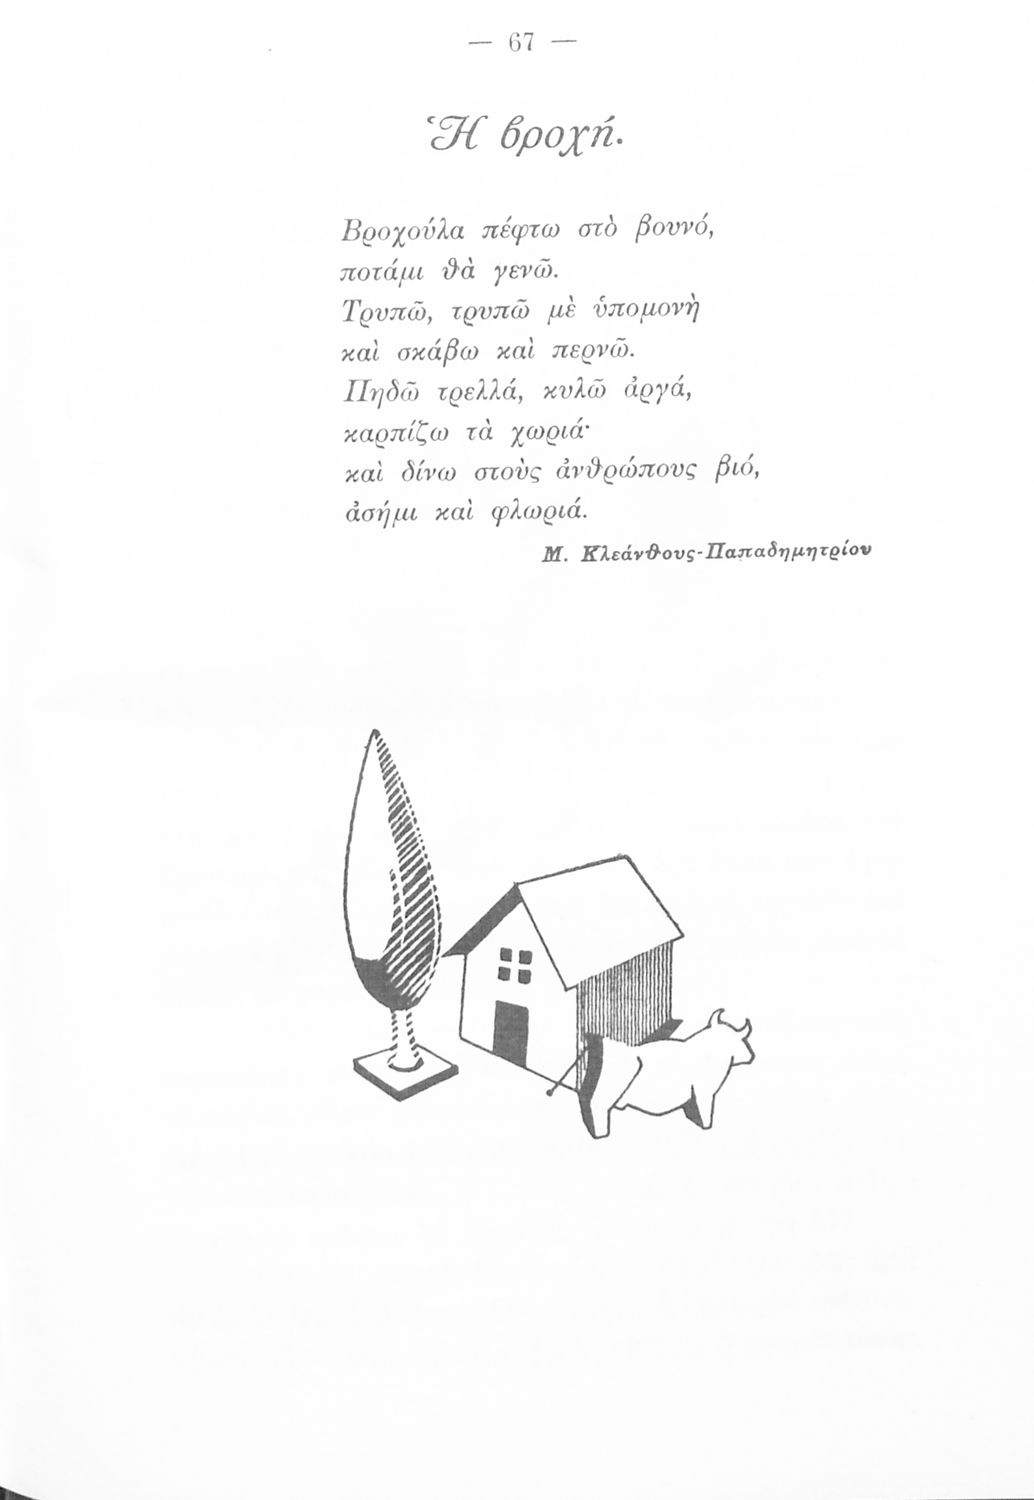 — 67 —
Ἡ βροχή.
Βροχούλα πέφτω στὸ βουνό,
ποτάμι θὰ γενῶ.
Τρυπῶ, τρυπῶ μὲ ὑπομονὴ
καὶ σκάβω καὶ περνῶ.
Πηδῶ τρελλά, κυλῶ ἀργά,
καρπίζω τὰ χωριά·
καὶ δίνω στοὺς ἀνθρώπους βιό,
ἀσήμι καὶ φλωριά.
Μ. Κλεάνθους-Παπαδημητρίου